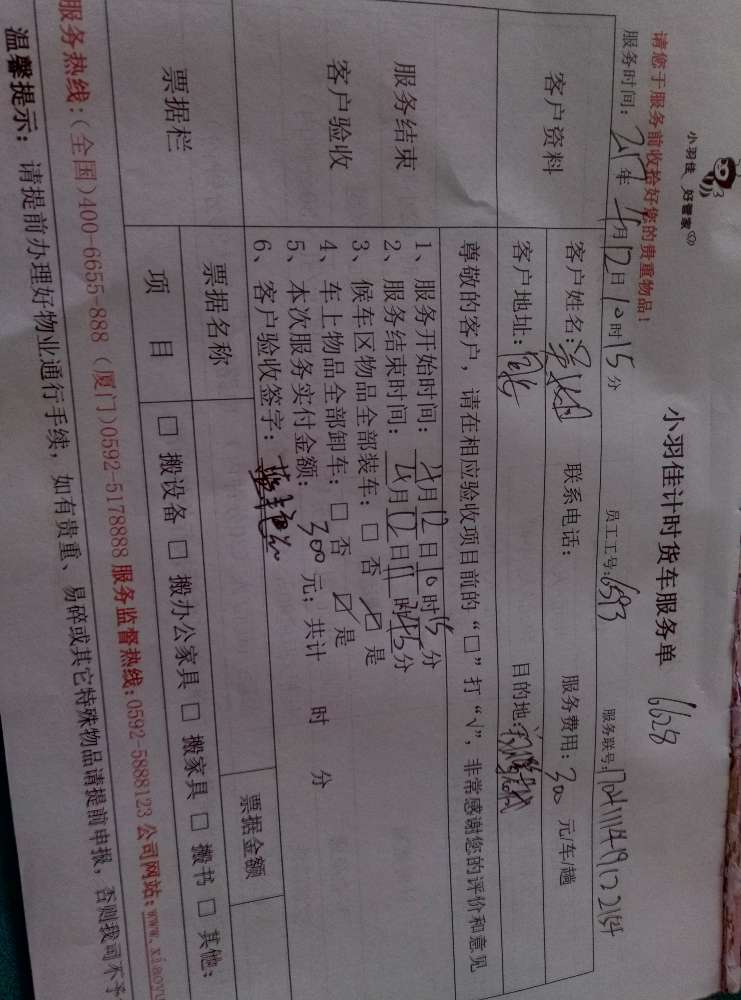 小羽佳 好管家
小羽佳计时货车服务单 6628
请您于服务前收拾好您的贵重物品！
服务时间： 年 4月12日10时15分 员工工号：6593 服务联号：
客户资料
客户姓名： 联系电话： 服务费用：300 元/车/趟
客户地址： 目的地：
尊敬的客户，请在相应验收项目前的“□”打“√”，非常感谢您的评价和意见
服务结束
客户验收
1、服务开始时间：4月12日10时15分
2、服务结束时间：4月12日11时 分
3、候车区物品全部装车：□ 否 ☑ 是
4、车上物品全部卸车：□ 否 ☑ 是
5、本次服务实付金额：300 元；共计 时 分
6、客户验收签字：
票据栏
票据名称 票据金额
项 目 □ 搬设备 □ 搬办公家具 □ 搬家具 □ 搬书 □ 其他：
服务热线：（全国）400-6655-888（厦门）0592-5178888 服务监督热线：0592-5888123 公司网站：www.xiaoyu
温馨提示：请提前办理好物业通行手续，如有贵重、易碎或其它特殊物品请提前申报，否则我司不予